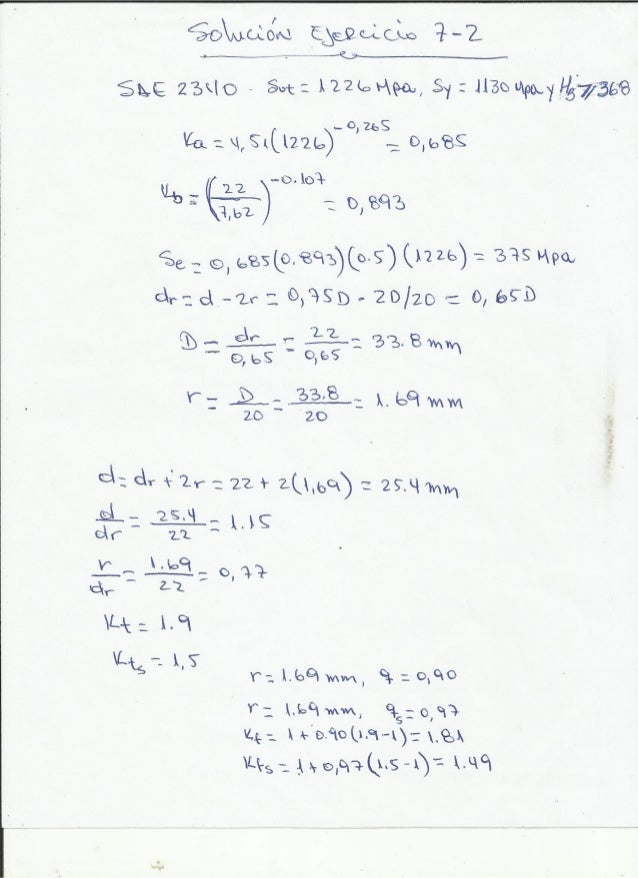 Solución Ejercicio 7-2
SAE 2340 . Sut = 1226 Mpa, Sy = 1130 Mpa y HB ≥ 368
Ka = 4,51(1226)^-0,265 = 0,685
Kb = (22/7,62)^-0.107 = 0,893
Se = 0,685(0.893)(0.5)(1226) = 375 Mpa
dr = d - 2r = 0,75D - 2D/20 = 0,65D
D = dr/0,65 = 22/0,65 = 33.8 mm
r = D/20 = 33.8/20 = 1.69 mm
d = dr + 2r = 22 + 2(1,69) = 25.4 mm
d/dr = 25.4/22 = 1.15
r/dr = 1.69/22 = 0,77
Kt = 1.9
Kts = 1,5
r = 1.69 mm, q = 0,90
r = 1.69 mm, qs = 0,97
Kf = 1 + 0.90(1.9-1) = 1.81
Kfs = 1 + 0,97(1.5-1) = 1.49